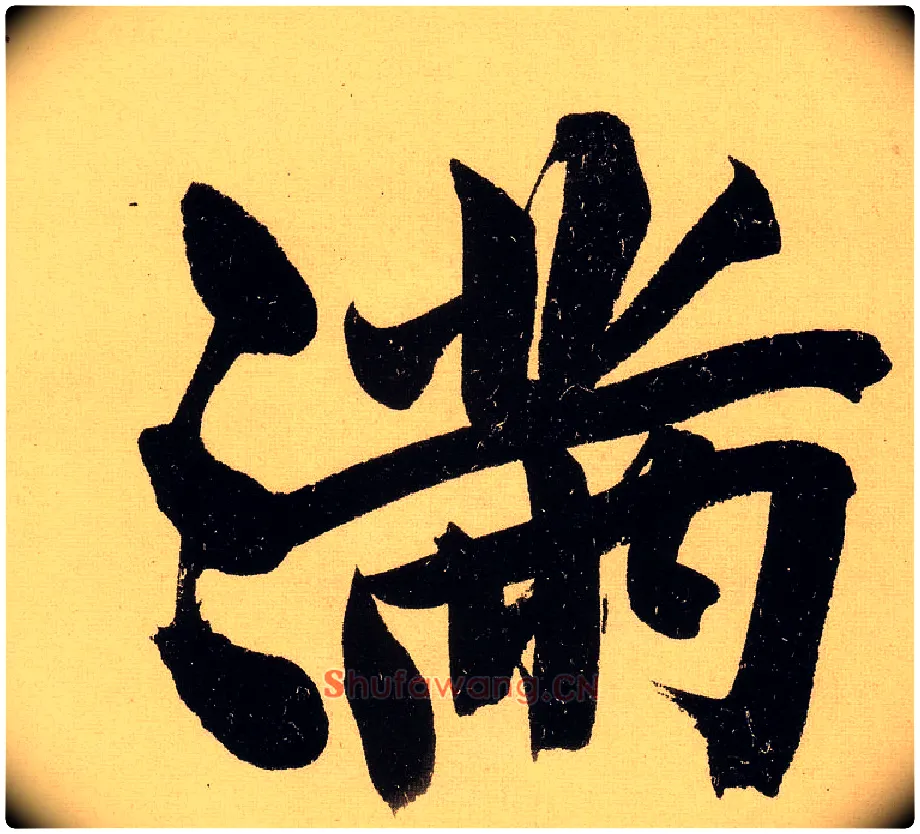 滿
Shufawang.CN